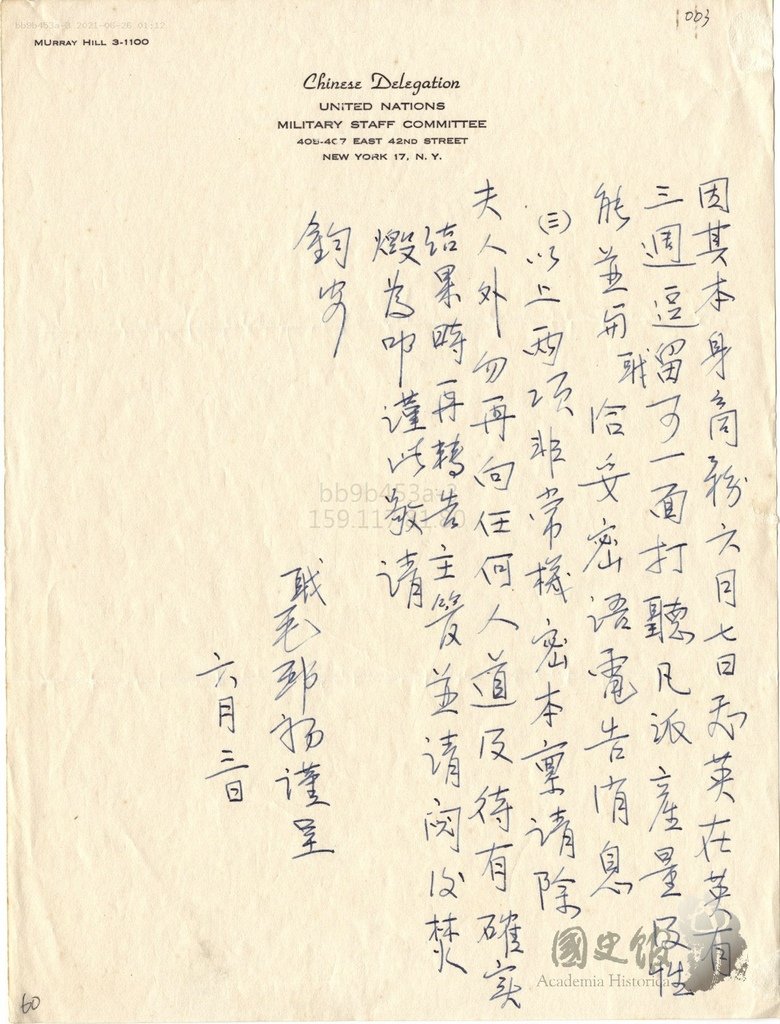 bb9b453a-3 2021-06-26 01:12
003
MURRAY HILL 3-1100
Chinese Delegation
UNITED NATIONS
MILITARY STAFF COMMITTEE
405-407 EAST 42ND STREET
NEW YORK 17, N. Y.
因其本身商務六月七日飛英在英有
三週逗留可一面打聽凡派產量及性
能並與職洽妥密語電告消息
(三)以上兩項非常機密本稟請除
夫人外勿再向任何人道及待有確實
結果時再轉告主管並請閱後焚
燬為叩謹此敬請
鈞安
職毛邦初謹呈
六月三日
bb9b453a-3
國史館
Academia Historica
60